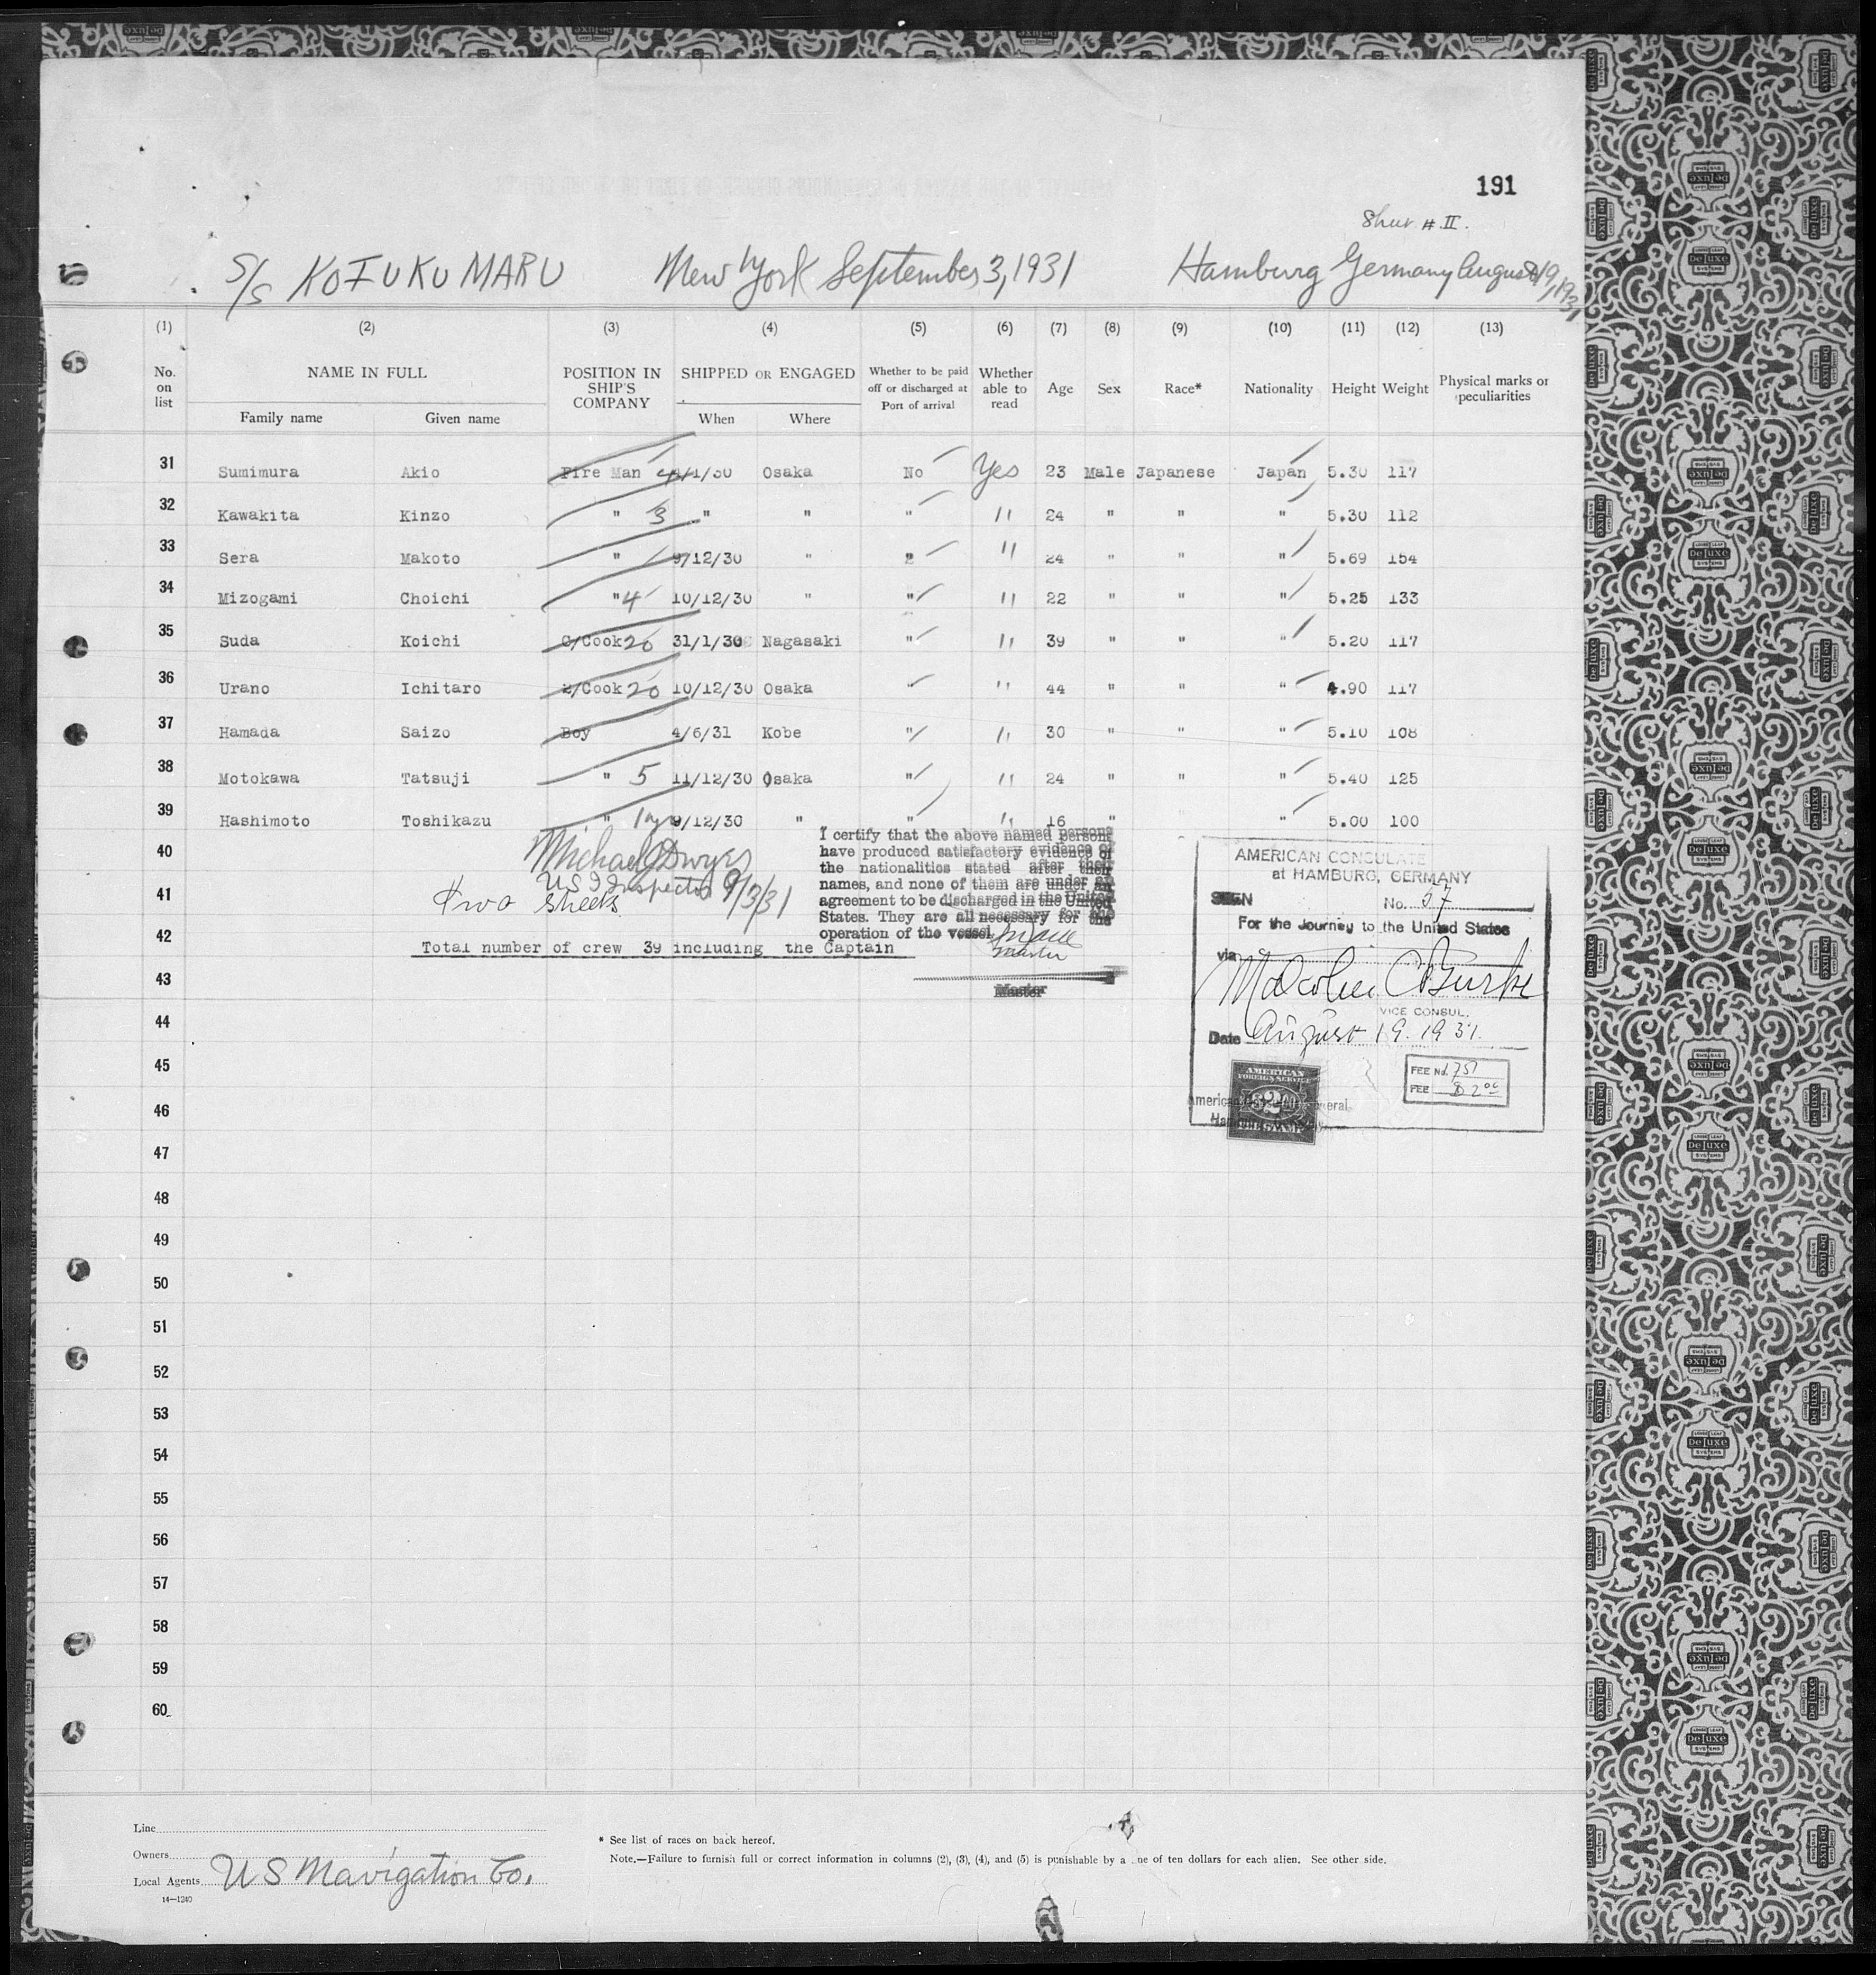 191
Sheet # II.
S/S KOFUKU MARU New York September 3, 1931 Hamburg Germany August 19, 1931
(1) (2) (3) (4) (5) (6) (7) (8) (9) (10) (11) (12) (13)
No. on list NAME IN FULL POSITION IN SHIP'S COMPANY SHIPPED OR ENGAGED Whether to be paid off or discharged at Port of arrival Whether able to read Age Sex Race* Nationality Height Weight Physical marks or peculiarities
Family name Given name When Where
31 Sumimura Akio Fire Man 4/1/30 Osaka No Yes 23 Male Japanese Japan 5.30 117
32 Kawakita Kinzo " 3 " " " " 24 " " " 5.30 112
33 Sera Makoto " 9/12/30 " " " 24 " " " 5.69 154
34 Mizogami Choichi " 4 10/12/30 " " " 22 " " " 5.25 133
35 Suda Koichi C/Cook 20 31/1/30 Nagasaki " " 39 " " " 5.20 117
36 Urano Ichitaro 2/Cook 20 10/12/30 Osaka " " 44 " " " 4.90 117
37 Hamada Saizo Boy 4/6/31 Kobe " " 30 " " " 5.10 108
38 Motokawa Tatsuji " 5 11/12/30 Osaka " " 24 " " " 5.40 125
39 Hashimoto Toshikazu " 1 yr 9/12/30 " " " 16 " " 5.00 100
40
41
42
43
44
45
46
47
48
49
50
51
52
53
54
55
56
57
58
59
60
Michael J Dwyer
US I Inspector 9/3/31
Two Sheets
Total number of crew 39 including the Captain
I certify that the above named persons
have produced satisfactory evidence of
the nationalities stated after their
names, and none of them are under an
agreement to be discharged in the United
States. They are all necessary for the
operation of the vessel.
Master
Master
AMERICAN CONSULATE
at HAMBURG, GERMANY
SEEN No. 57
For the Journey to the United States
via
Malcolm C Burke
VICE CONSUL.
Date August 19. 1931.
FEE No. 751
FEE $2.00
AMERICAN
FOREIGN SERVICE
$2.00
FEE STAMP
American Consulate General
Line
Owners
Local Agents U S Navigation Co.
14—1240
* See list of races on back hereof.
Note.—Failure to furnish full or correct information in columns (2), (3), (4), and (5) is punishable by a ne of ten dollars for each alien. See other side.
LOOSE LEAF
De luxe
SYSTEMS